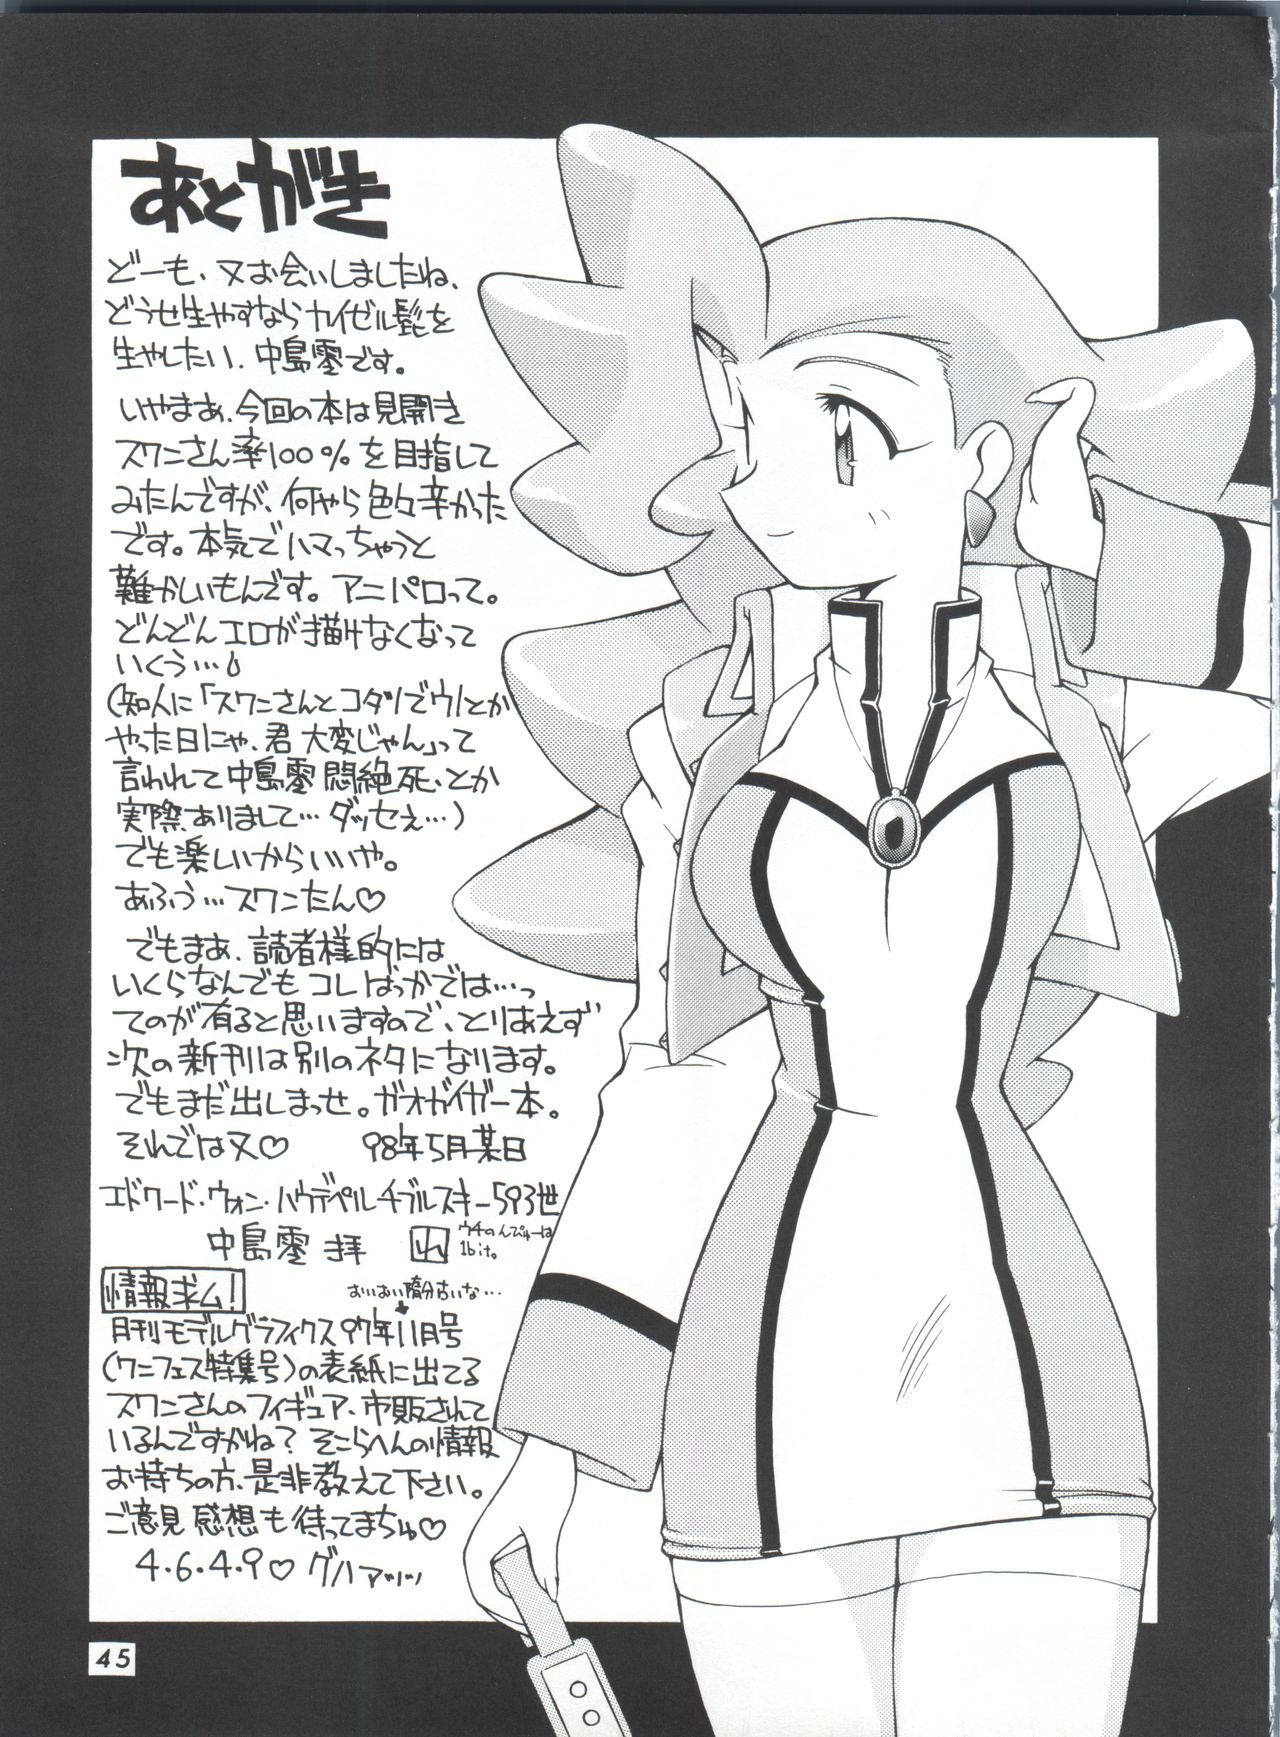 あとがき
どーも、又お会いしましたね、
どうせ生やすならカイゼル髭を
生やしたい、中島零です。
いやまあ、今回の本は見開き
スワンさん率100%を目指して
みたんですが、何やら色々辛かった
です。本気でハマっちゃうと
難かしいもんです。アニパロって。
どんどんエロが描けなくなって
いくう…
(知人に「スワンさんとコダ!でウ!とか
やった日にゃ、君大変じゃん」って
言われて中島零悶絶死、とか
実際ありまして…ダッセえ…)
でも楽しいからいいや。
あふう…スワンたん♡
でもまあ、読者様的には
いくらなんでもコレばっかでは…っ
てのが有ると思いますので、とりあえず
次の新刊は別のネタになります。
でもまだ出しまっせ。ガオガイガー本。
それでは又♡ 98年5月某日
エドワード・ウォン・ハウデペルチブルスキー593世
中島零 拝
ウチのんぴゅーは
1bit。
情報求ム!
おいおい随分古いな…
月刊モデルグラフィクス97年11月号
(ワンフェス特集号)の表紙に出てる
スワンさんのフィギュア、市販されて
いるんですかね? そこらへんの情報
お持ちの方、是非教えて下さい。
ご意見感想も待ってまちゅ♡
4・6・4・9♡ グハァッッ
45